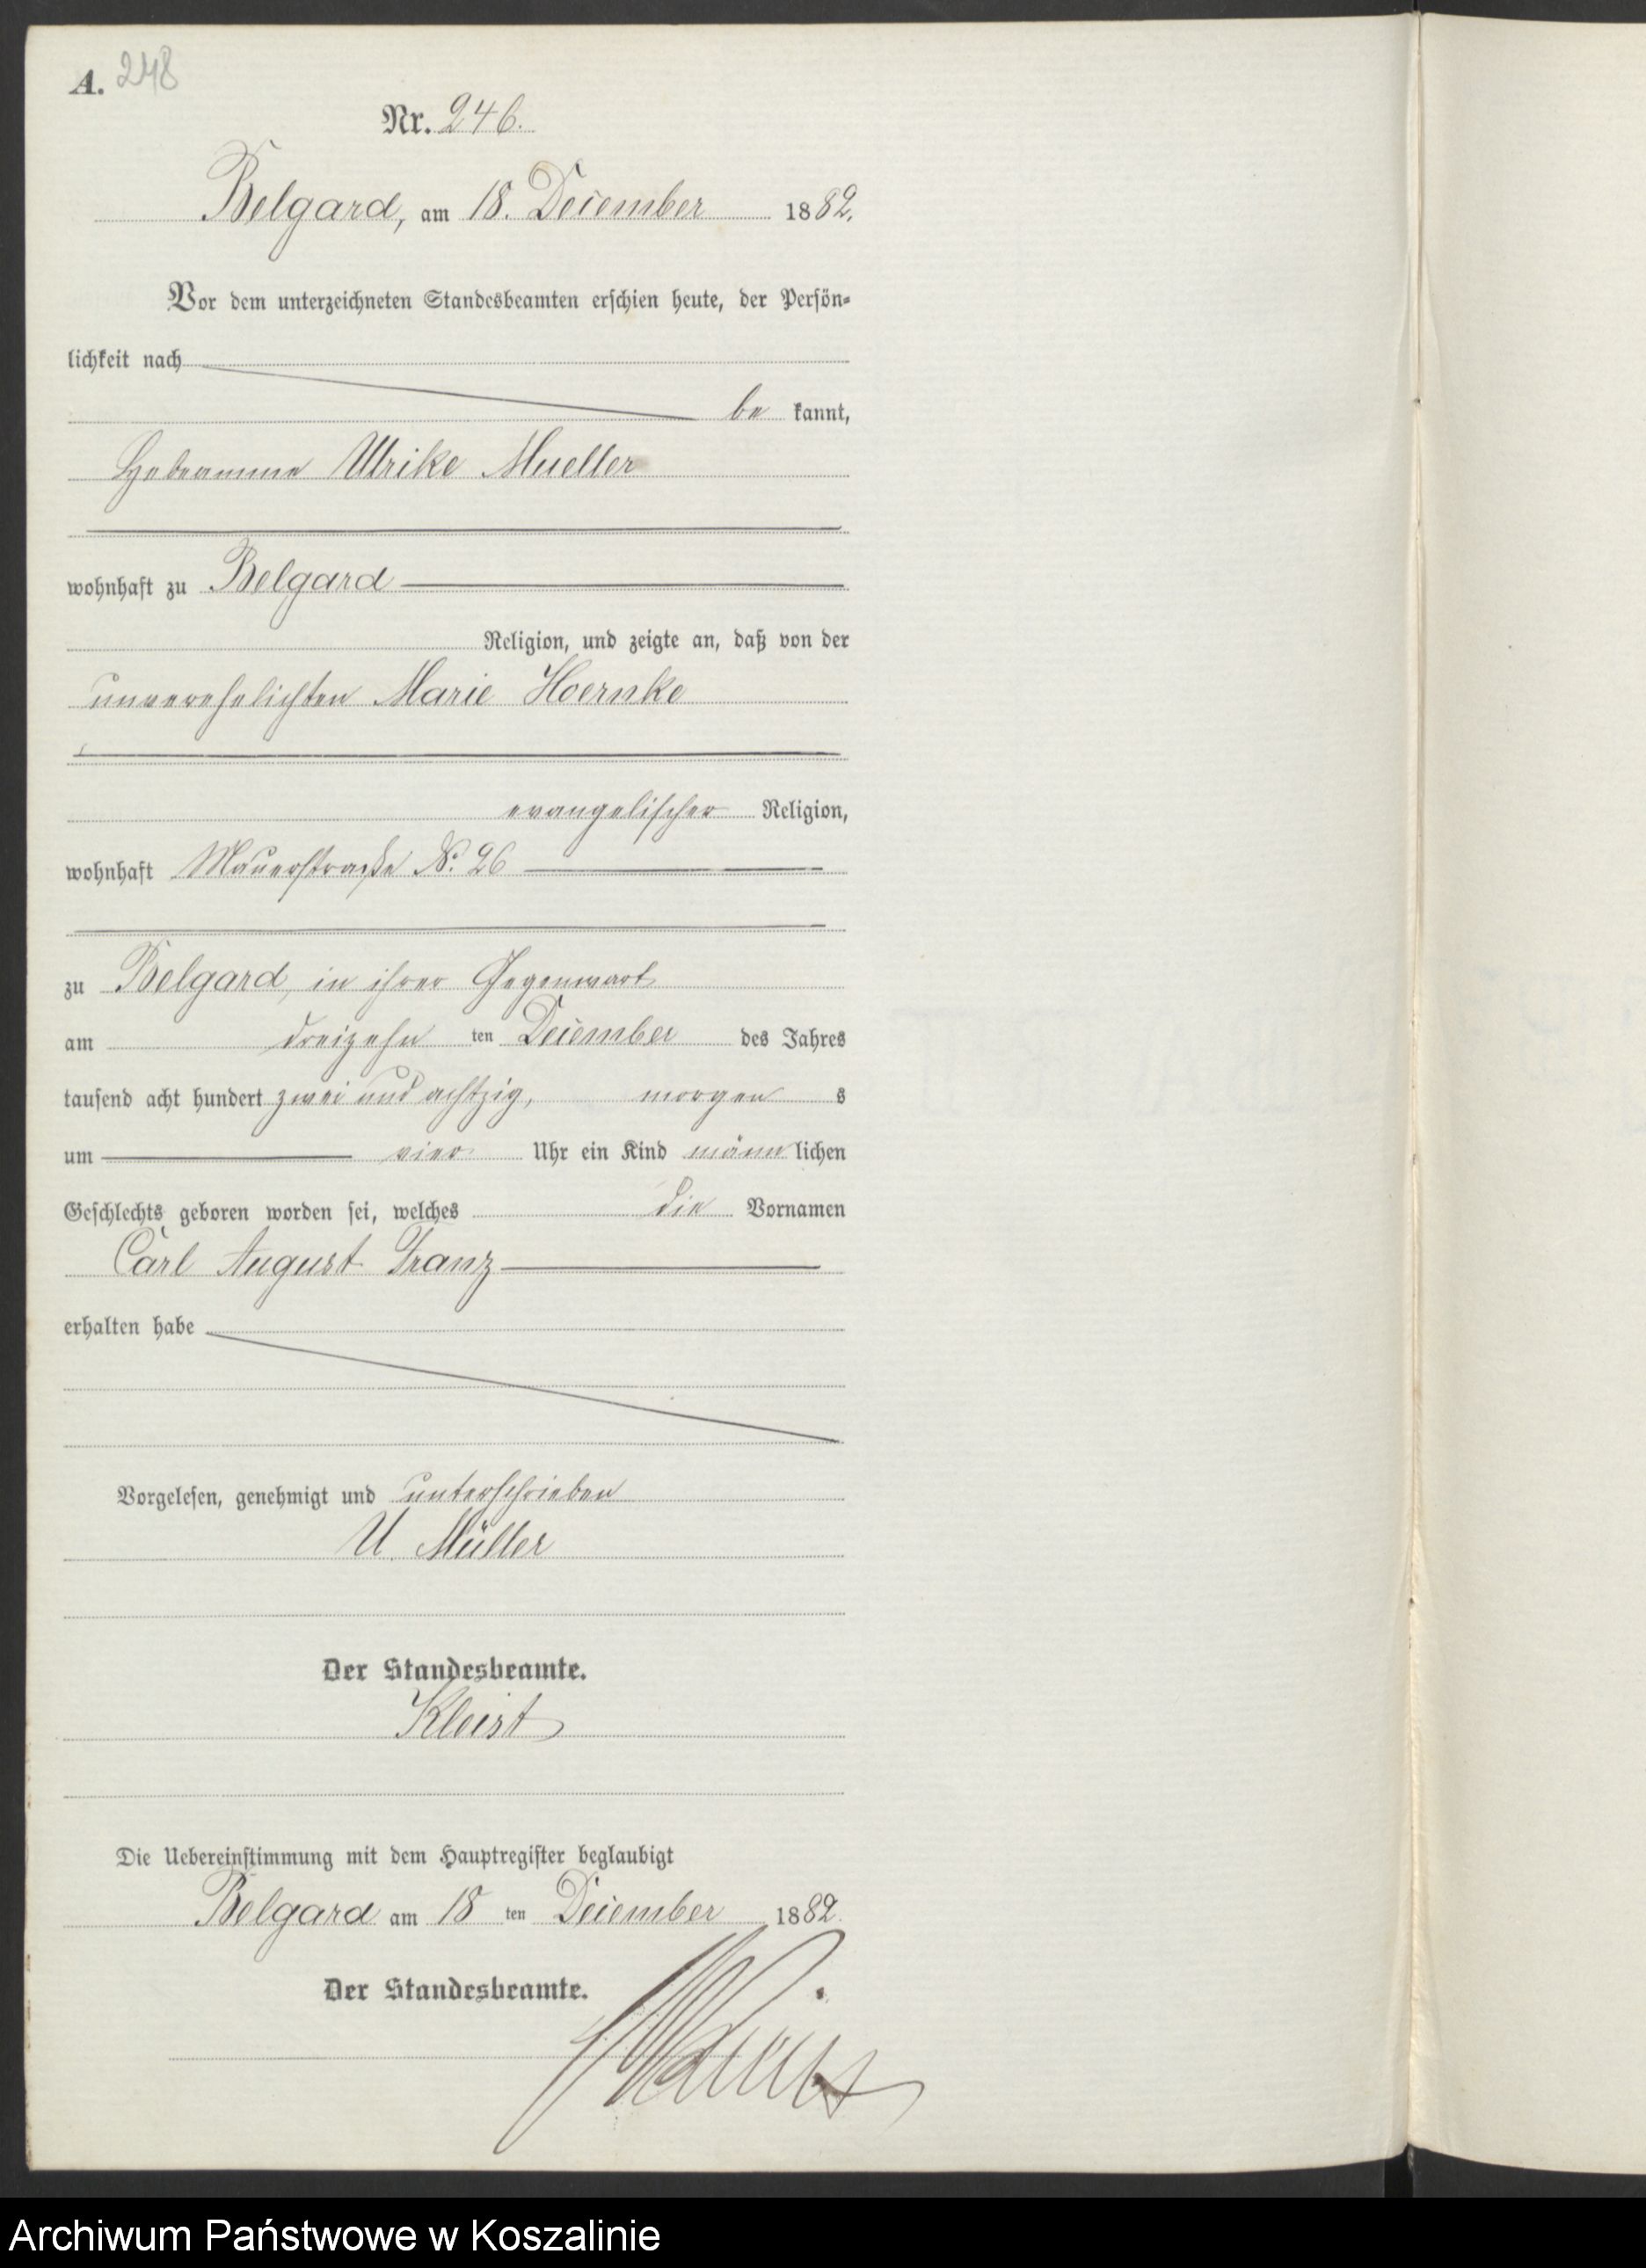 A. 248
Nr. 246.
Belgard, am 18. December 1882.
Vor dem unterzeichneten Standesbeamten erschien heute, der Persön-
lichkeit nach
be kannt,
Hebeamme Ulrike Mueller
wohnhaft zu Belgard
Religion, und zeigte an, daß von der
unverehelichten Marie Hoernke
evangelischer Religion,
wohnhaft Mauerstraße No. 26
zu Belgard, in ihrer Gegenwart
am dreizehn ten December des Jahres
tausend acht hundert zwei und achtzig, morgen s
um vier Uhr ein Kind männ lichen
Geschlechts geboren worden sei, welches die Vornamen
Carl August Franz
erhalten habe
Vorgelesen, genehmigt und unterschrieben
U. Müller
Der Standesbeamte.
Kleist
Die Uebereinstimmung mit dem Hauptregister beglaubigt
Belgard am 18 ten December 1882.
Der Standesbeamte.
Archiwum Państwowe w Koszalinie